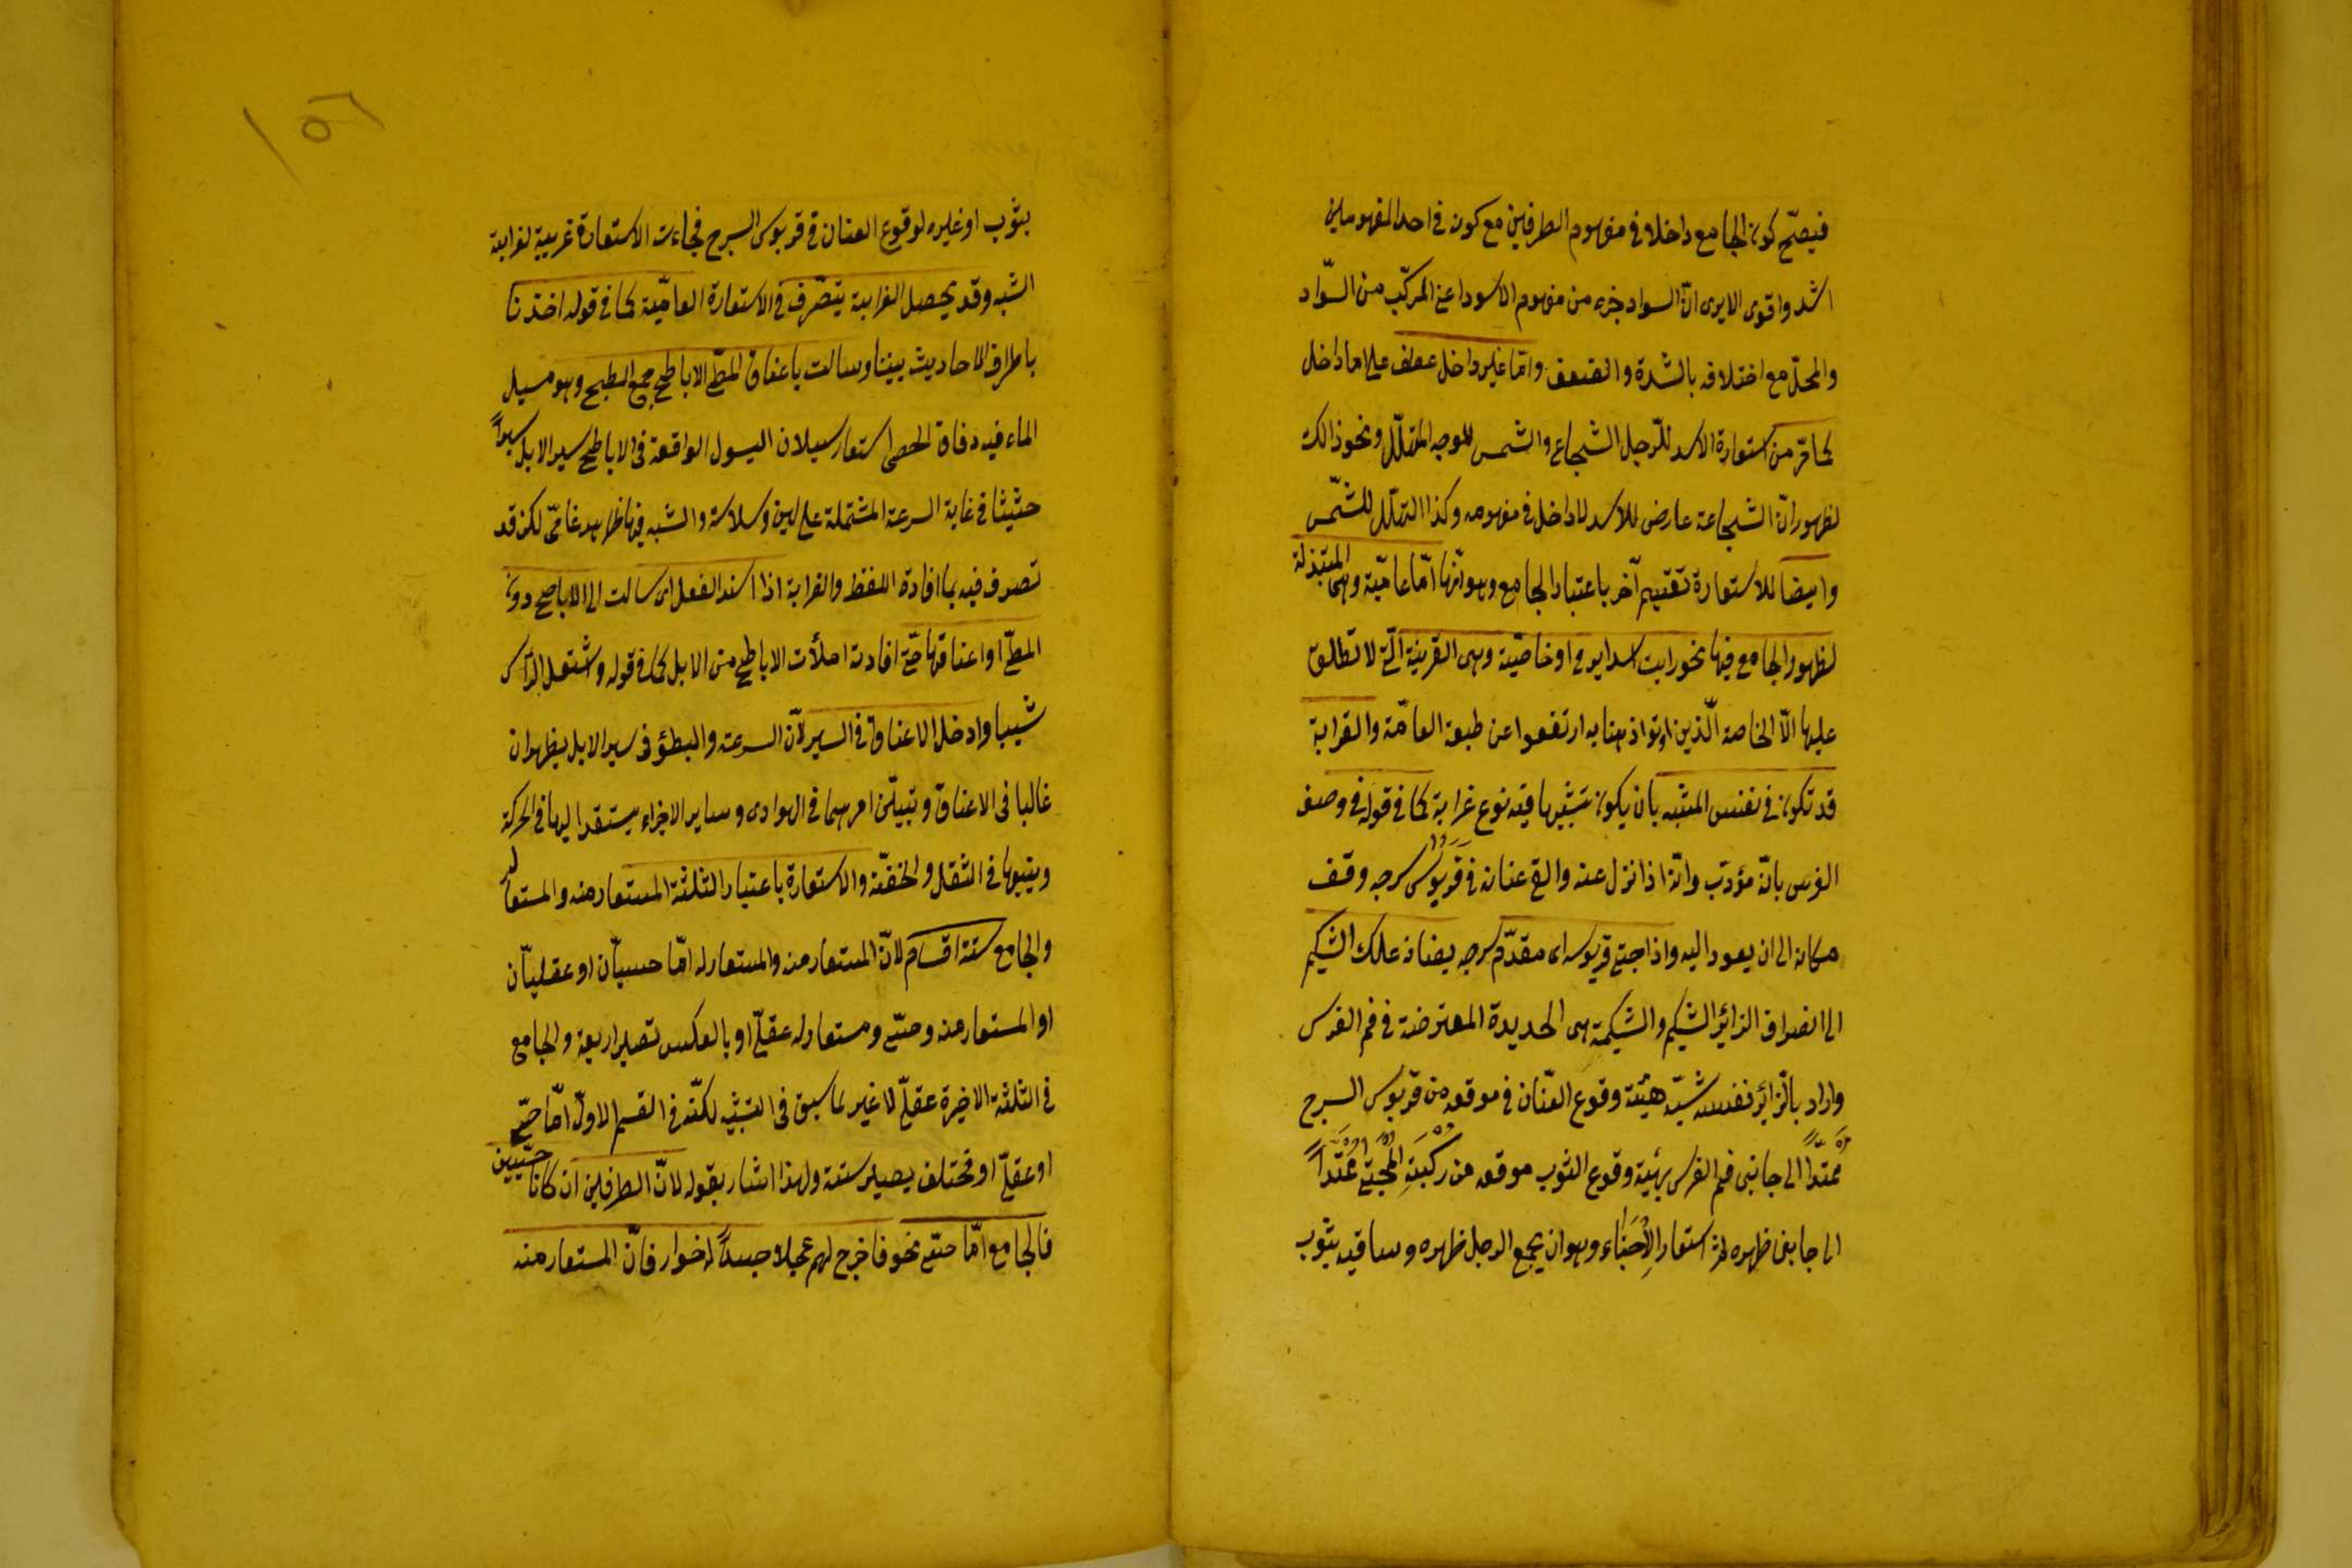 فيصحّ كون الجامع داخلا فى مفهوم الطرفين مع كونه فى احد المفهومين
اشد واقوى الا يرى انّ السواد جزء من مفهوم الاسود اعنى المركّب من السّواد
والمحلّ مع اختلافه بالشدة والضعف وامّا غير داخل عطف على اما داخل
كما مرّ من استعارة الاسد للرّجل الشجاع والشمس للوجه المتهلّل ونحو ذالك
لظهور انّ الشجاعة عارض للاسد لا داخل فى مفهومه وكذا التهلّل للشّمس
وايضا للاستعارة تقسيم آخر باعتبار الجامع وهو انّها امّا عاميّة وهى المبتذلة
لظهور الجامع فيها نحو رايت اسدا يرمى او خاصّية وهى الغريبة الّتى لا تطلع
عليها الّا الخاصة الّذين اوتوا ذهنا به ارتفعوا عن طبقة العامّة والغرابة
قد تكون فى نفس الشبه بان يكون تشبيها فيه نوع غرابة كما فى قوله فى وصف
الفرس بانّه مؤدّب وانّه اذا نزل عنه والقى عنانه فى قَرَبُوس سرجه وقف
مكانه الى ان يعود اليه واذا احتبى قربوسه اى مقدّم سرجه بعنانه علك الشكيم
الى انصراف الزائر الشكيم والشكيمة هى الحديدة المعترضة فى فم الفرس
واراد بالزائر نفسه شبّه هيئة وقوع العنان فى موقعه من قربوس السرج
ممتدّاً الى جانبى فم الفرس بهيئة وقوع الثوب موقعه من ركبَةِ المُحتبى ممتدّاً
الى جانبى ظهره ثم استعار الاحتباء وهو ان يجمع الرجل ظهره وساقيه بثوب
١٥٦
بثوب او غيره لوقوع العنان فى قربوس السرج فجاءت الاستعارة غريبة لغرابة
الشبه وقد يحصل الغرابة بتصّرف فى الاستعارة العاميّة كما فى قوله اخذنا
باطراف الاحاديث بيننا وسالت باعناق المطىّ الاباطح جمع ابطح وهو مسيل
الماء فيه دقاق الحصى استعار سيلان السيول الواقعة فى الاباطح لسير الابل سيراً
حثيثا فى غاية السرعة المشتملة على لين وسلاسة والشبه فيها ظاهر عامّى لكن قد
تصرف فيه بما افادة اللفظ والغرابة اذا اسند الفعل اى سالت الى الاباطح دون
المطىّ او اعناقها حتّى افادت امتلأت الاباطح من الابل كما فى قوله واشتعل الرّاس
شيبا وادخل الاعناق فى السير لأنّ السرعة والبطؤ فى سير الابل يظهران
غالبا فى الاعناق ويتبيّن امرهما فى الهوادى وساير الاجزاء يستند اليها فى الحركة
ويتبعها فى الثقل والخفّة والاستعارة باعتبار الثلثة المستعار منه والمستعار له
والجامع ستة اقسام لانّ المستعار منه والمستعار له امّا حسيّان او عقليّان
او المستعار منه وحسّى ومستعار له عقلىّ او بالعكس تصير اربعة والجامع
فى الثلثة الاخيرة عقلىّ لا غير لما سبق فى التشبيه لكنّه فى القسم الاوّل امّا حسّى
او عقلىّ او مختلف يصير ستة ولهذا اشار بقوله لانّ الطرفين ان كانا حسّيين
فالجامع امّا حسّى نحو فاخرج لهم عجلا جسداً له خوار فانّ المستعار منه